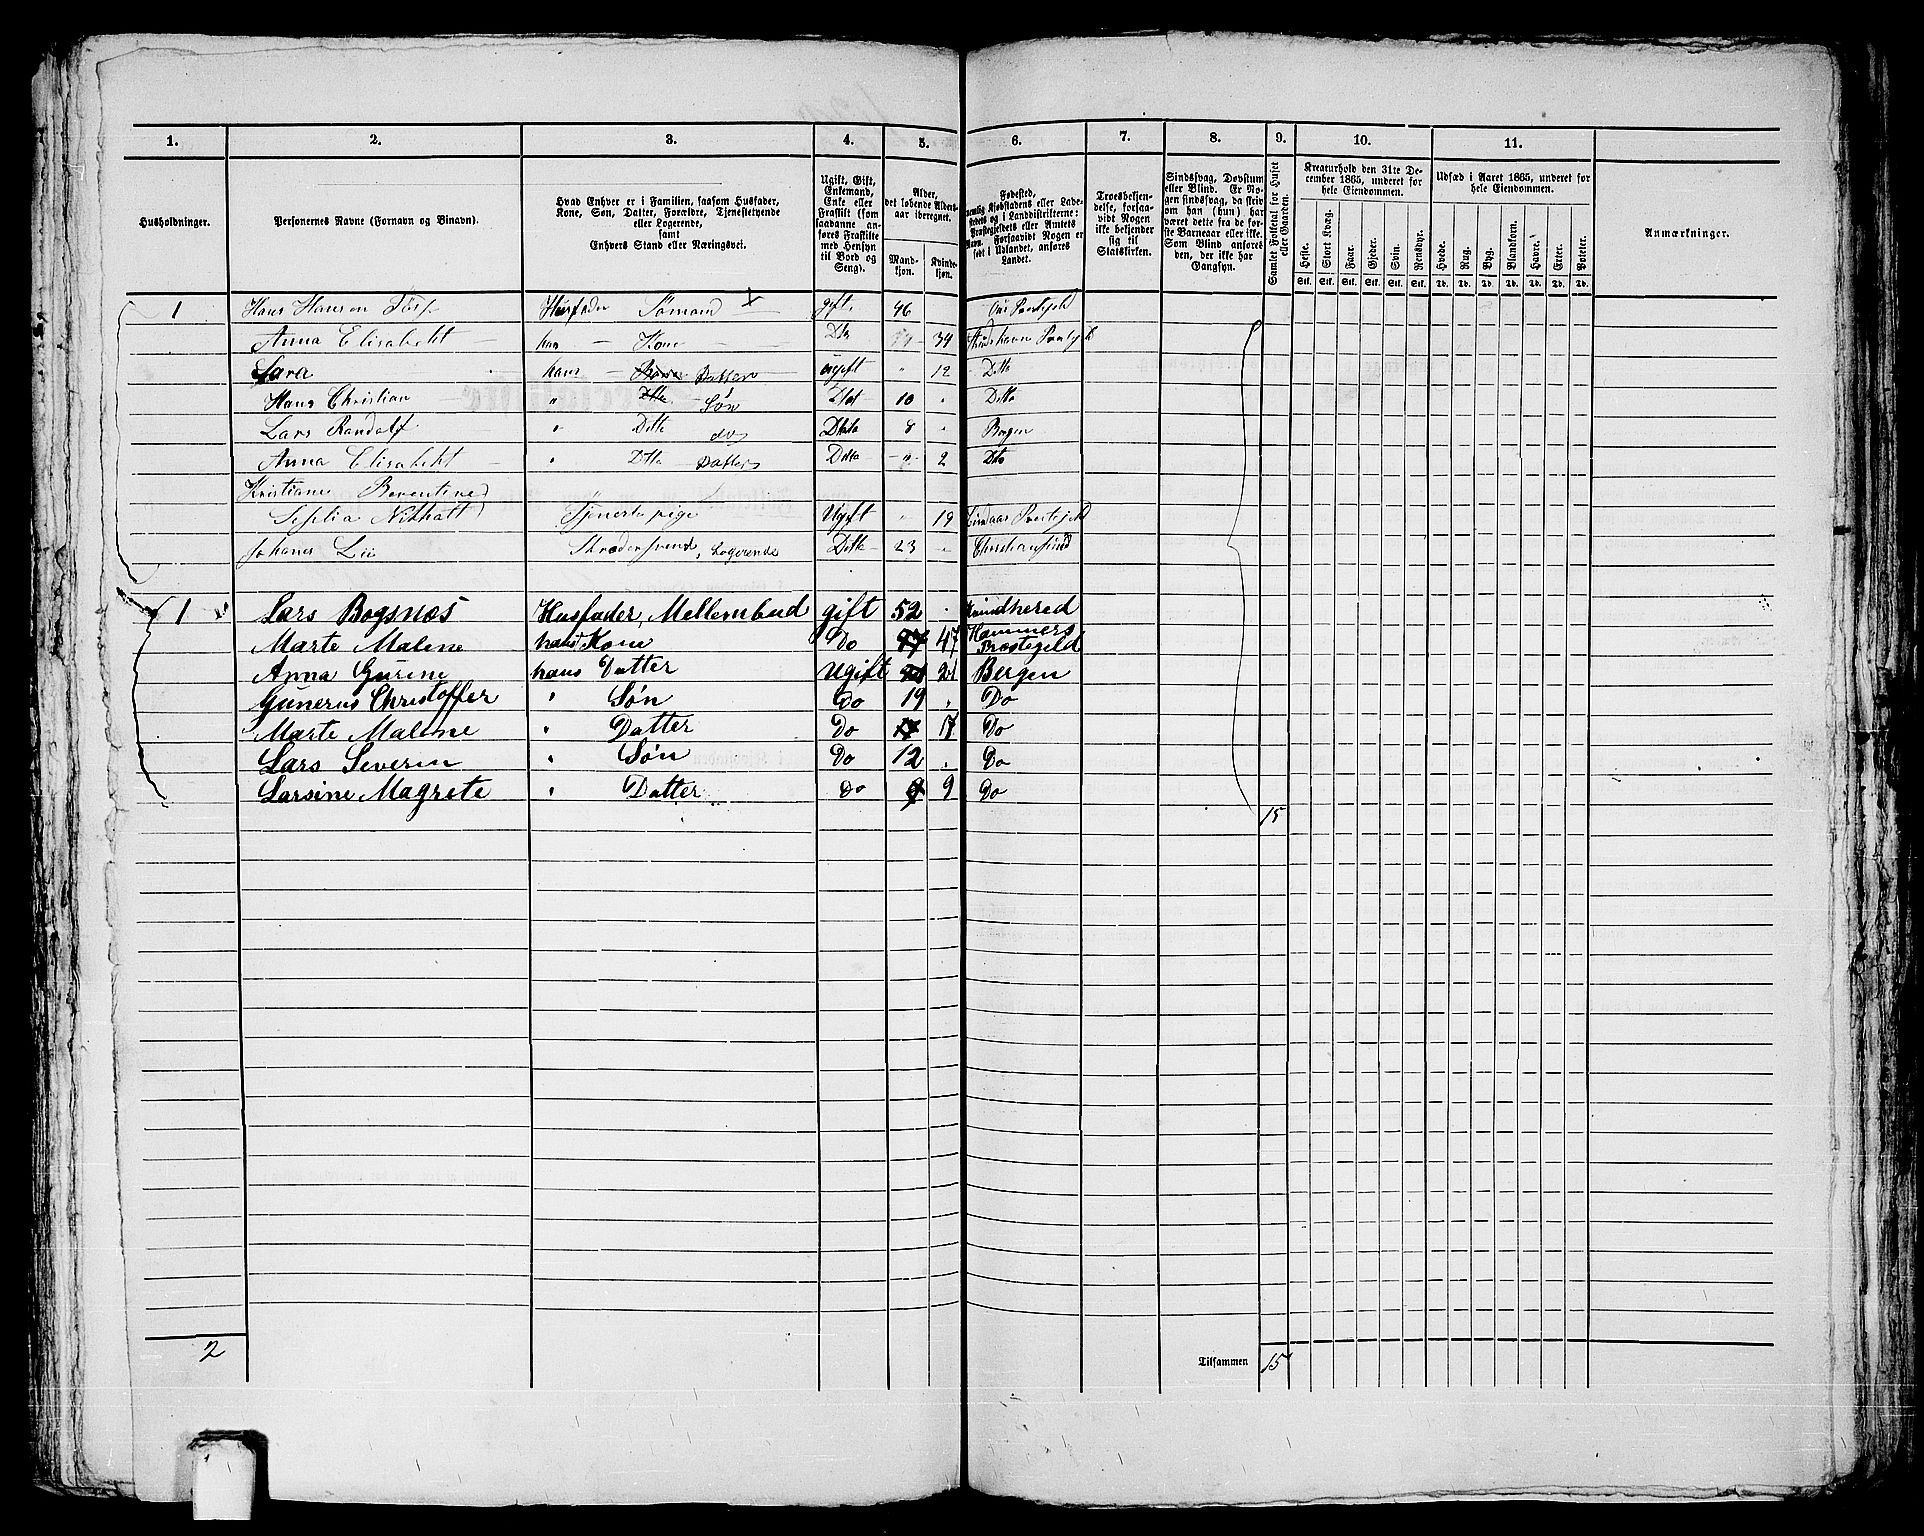 1. 2. 3. 4. 5. 6. 7. 8. 9. 10. 11.
Husholdninger.
Personernes Navne (Fornavn og Binavn).
Hvad Enhver er i Familien, saasom Husfader,
Kone, Søn, Datter, Forældre, Tjenestetyende
eller Logerende,
samt
Enhvers Stand eller Næringsvei.
Ugift, Gift,
Enkemand,
Enke eller
Fraskilt (som
saadanne an-
føres Fraskilte
med Hensyn
til Bord og
Seng).
Alder,
det løbende Alders-
aar iberegnet.
Mand-
kjøn.
Kvinde-
kjøn.
Fødested,
nemlig Kjøbstadens eller Lade-
stedets og i Landdistrikterne:
Præstegjeldets eller Amtets
Navn. Forsaavidt Nogen er
født i Udlandet, anføres
Landet.
Troesbekjen-
delse, forsaa-
vidt Nogen
ikke bekjender
sig til
Statskirken.
Sindssvag, Døvstum
eller Blind. Er No-
gen sindssvag, da skriv
om han (hun) har
været dette fra de før-
ste Barneaar eller ikke.
Som Blind anføres
den, der ikke har
Gangsyn.
Samlet Folketal for Huset
eller Gaarden.
Kreaturhold den 31te De-
cember 1865, underet for
hele Eiendommen.
Heste. Stort Kvæg. Faar. Gjeder. Svin. Rensdyr.
Stk. Stk. Stk. Stk. Stk. Stk.
Udsæd i Aaret 1865, underet for
hele Eiendommen.
Hvede. Rug. Byg. Blandkorn. Havre. Erter. Poteter.
Td. Td. Td. Td. Td. Td. Td.
Anmærkninger.
1 Hans Hansen Husfader Sømand X gift. 46 Præstegjeld
Anna Elisabeht hans Kone Dto 39
Sara hans Datter ugift " 12 Ditto
Hans Christian " Ditto Søn Ditto 10 " Ditto
Lars Randolf " Ditto do Ditto 8 " Bergen
Anna Elisabeht " Ditto Datter Ditto " 2 Dito
Kristiane Berentine
Sophia Tjenestepige Ugift " 19 Lindaas Præstegjeld
Johanes Lie Skrædersvend, Logerende Ditto 23 " Christiansund
1 Lars Bogsnæs Husfader, Mellembud gift 52 . Kvindhered
Marte Malene hans Kone Do 47 Hammers Præstegeld
Anna Gurine hans Datter Ugift 21 Bergen
Gunerus Christoffer " Søn Do 19 . Do
Marte Malene " Datter Do 17 Do
Lars Severin " Søn Do 12 . Do
Larsine Magrete " Datter Do 9 Do
15
2 Tilsammen 15